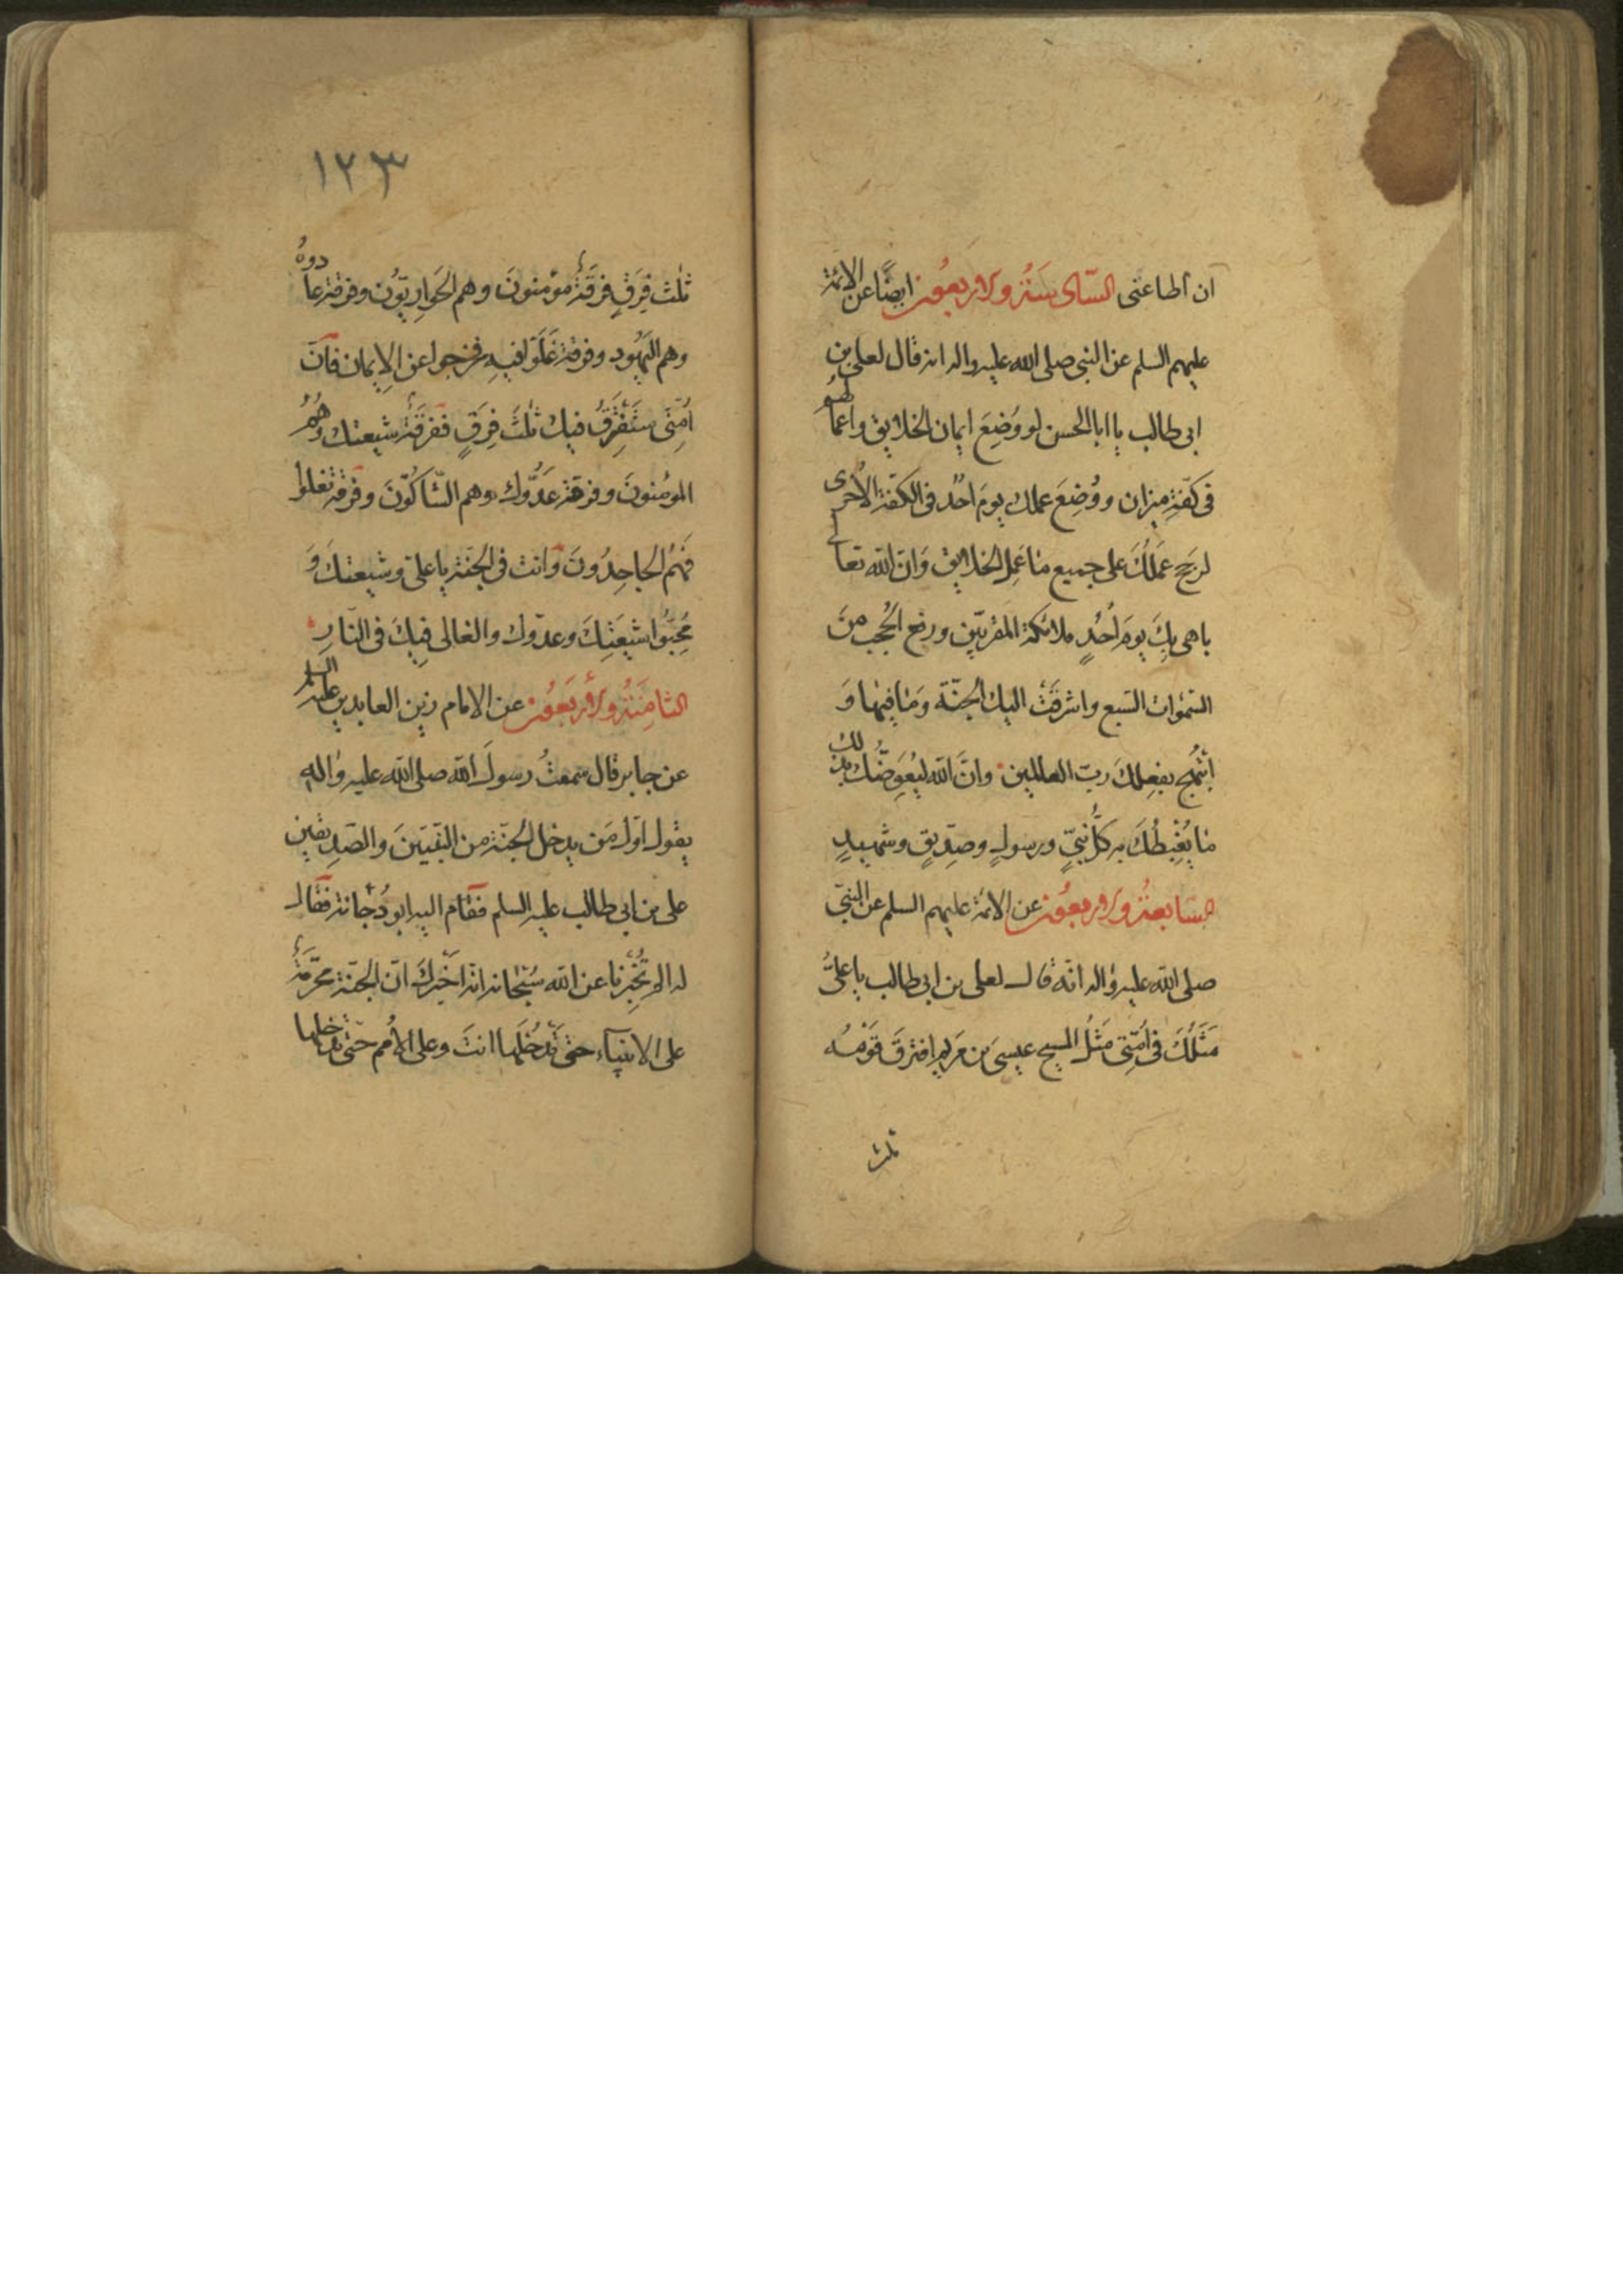 ان اطاعتی السّادسَةُ والاربعُون ایضًا عن الائمّة
علیهم السلم عن النبی صلی الله علیه واله انه قال لعلی بن
ابی طالب یا ابا الحسن لو وُضِعَ ایمان الخلایق واعمالهم
فی کفّةِ میزان ووُضِعَ عملك یومَ احُد فی الکفّة الاُخرى
لرجح عَملُكَ على جمیع ما عَمِل الخلایق وَانّ الله تعالى
باهى بِكَ یومَ اُحُدٍ ملائکة المقربّین ورفع الحُجب منَ
السّمٰوات السّبع واشرقَتْ الیك الجنّة وَمَا فیها وَ
ابتهج بفِعلِكَ ربّ العالمین وانَّ الله لیُعَوِضُّك بذلك
ما یُغْبِطُكَ به کلُّ نبیّ ورسولٍ وصدّیقٍ وشهیدٍ
السّابعةُ والاربعُون عن الائمّة علیهم السلم عن النبیّ
صلی الله علیه واله انّه قال لعلی بن ابی طالب یا علیّ
مَثَلُكَ فی اُمّتِی مَثَلُ المسیح عیسىَ بن مَریم افترقَ قَوْمُه
ثلث
١٢٣
ثلٰث فِرَقٍ فرقَةٌ مؤمنونَ وهم الحَوارِیّوُن وفرقة عادوهُ
وهم الیهُود وفرقة غَلَوا فیهِ فخرجوا عن الاِیمان فانّ
اُمّتِی سَتَفْتَرِقُ فیك ثلٰثَ فِرَقٍ ففرقَةٌ شیعتك وهُمُ
المؤمنونَ وفرقة عَدُّوك وهم الشّاکّونَ وفرقة تغلوا
فهُم الجاحِدُونَ وَانت فی الجنّة یا علیّ وشیعتكَ وَ
مُحِبّوُا شیعَتِكَ وعدّوك والغالی فِیكَ فی النّارِ
الثامِنَةُ والأربَعُون عن الامام زین العابدین علیه السلم
عن جابر قال سمعتُ رسولَ الله صلی الله علیه واٰلهِ
یقول اوّل مَن یدخل الجنّة من النّبیّینَ والصّدیقین
علی بن ابی طالب علیه السلم فقام الیه ابو دُجانة فقال
له الم تُخْبِرنا عن الله سُبْحٰانه انه اخبَركَ انّ الجنّة محرّمَةٌ
على الانبیآء حتى تَدخُلَها انتَ وعلى الاُمم حتّى تدخلها